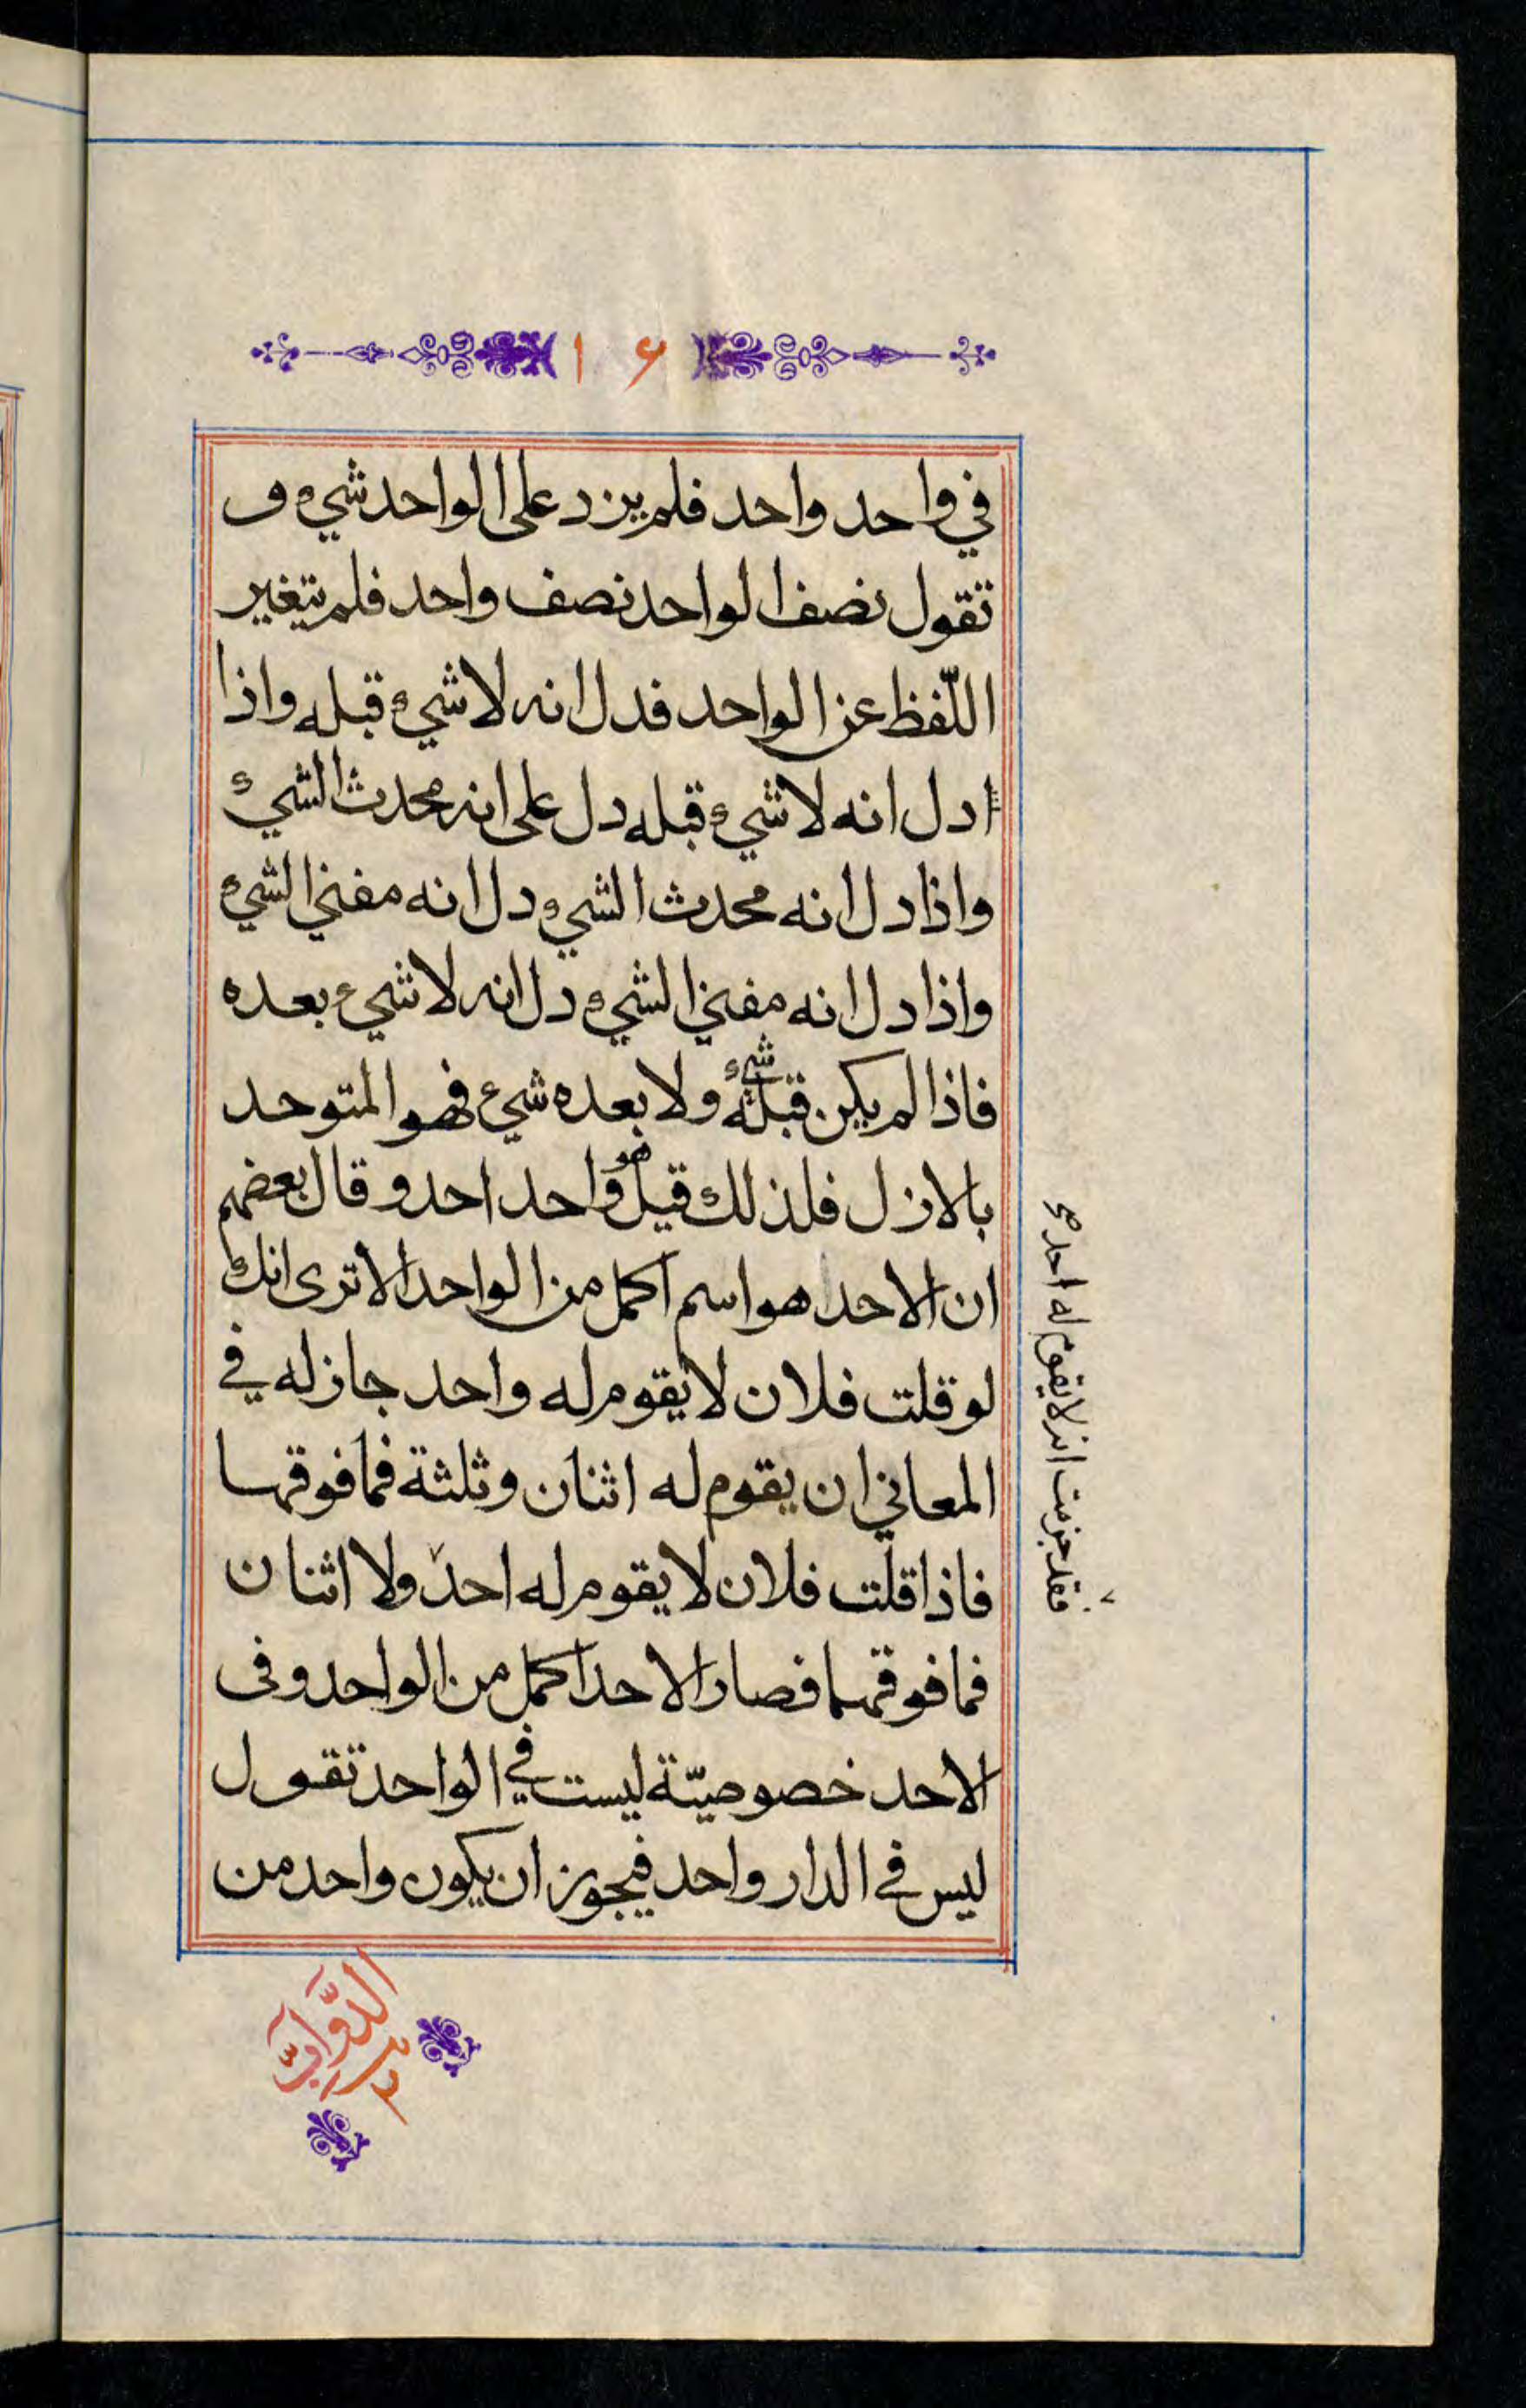 ١ ۶
في واحد واحد فلم يزد على الواحد شيء و
تقول نصف الواحد نصف واحد فلم يتغير
اللّفظ عن الواحد فدل انه لا شيء قبله واذا
ادل انه لا شيء قبله دل على انه محدث الشيء
واذا دل انه محدث الشيء دل انه مفني الشيء
واذا دل انه مفني الشيء دل انه لا شيء بعده
فاذا لم يكن قبله شيء ولا بعده شيء فهو المتوحد
بالازل فلذلك قيل هو واحد احد و قال بعضهم
ان الاحد هو اسم اكمل من الواحد الا ترى انك
لو قلت فلان لا يقوم له واحد جاز له في
المعاني ان يقوم له اثنان و ثلثة فما فوقهما
فاذا قلت فلان لا يقوم له احد ولا اثنان
فما فوقهما فصار الاحد اكمل من الواحد وفى
الاحد خصوصيّة ليست في الواحد تقول
ليس في الدار واحد فيجوز ان يكون واحد من
فقد جزمت انه لا يقوم له احد صح
الدّوابّ